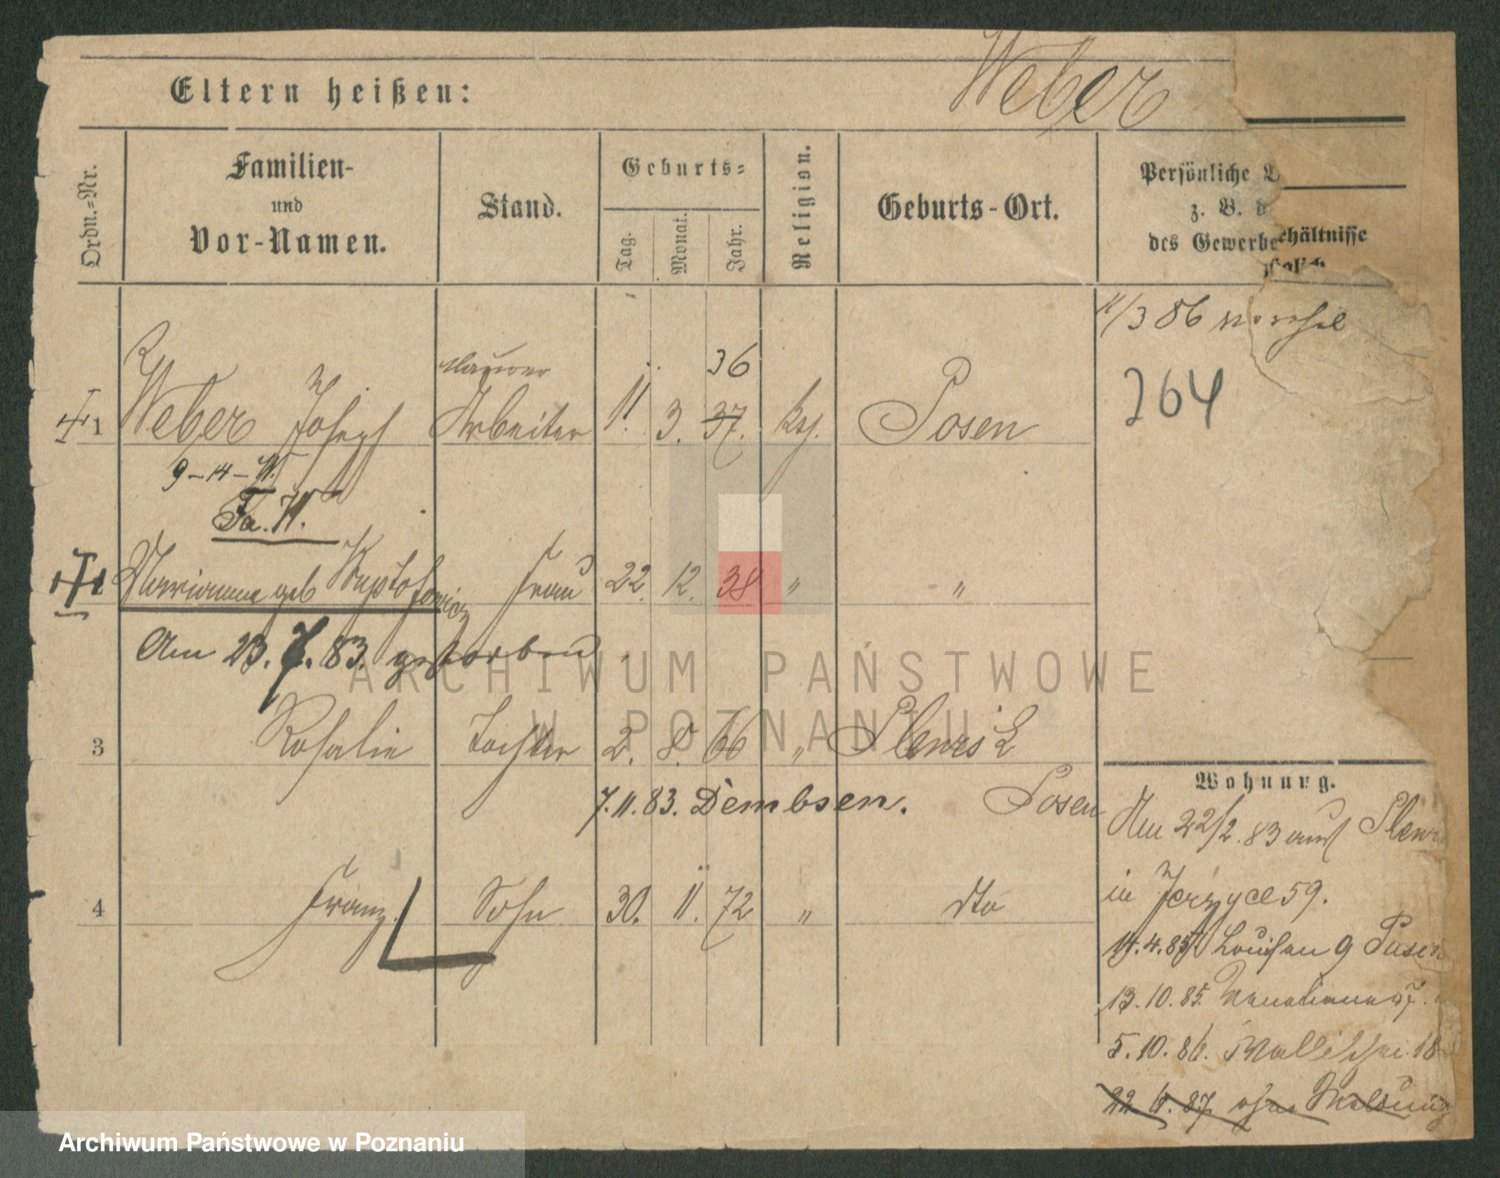 Weber
Eltern heißen:
Ordn.-Nr.
Familien-
und
Vor-Namen.
Stand.
Geburts-
Tag.
Monat.
Jahr.
Religion.
Geburts-Ort.
Persönliche
z. B. d
des Gewerbe
hältnisse
11/3 86
264
Maurer
36
1 Weber Joseph Arbeiter 11. 3. 37. kth. Posen
9-14-11.
Fa. 71.
Marianna geb Frau 22. 12. 38 " "
Am 23. 7. 83. gestorben
3 Rosalie Tochter 2. 8. 66 "
7.11.83. Dembsen. Posen
4 Franz. Sohn 30. 11. 72 " dto
Wohnung.
Am 22/2. 83 aus
in Jerzyce 59.
14.4.85 Louisen 9 Posen
13.10.85.
5.10.86. Wallischei 18
22 6. 87 ohne Meldung
ARCHIWUM PAŃSTWOWE
W POZNANIU
Archiwum Państwowe w Poznaniu